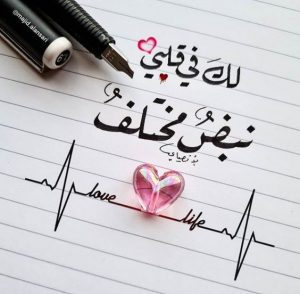 @majd.alamari
لكَ في قلبي
نبضٌ مختلفُ
love
life